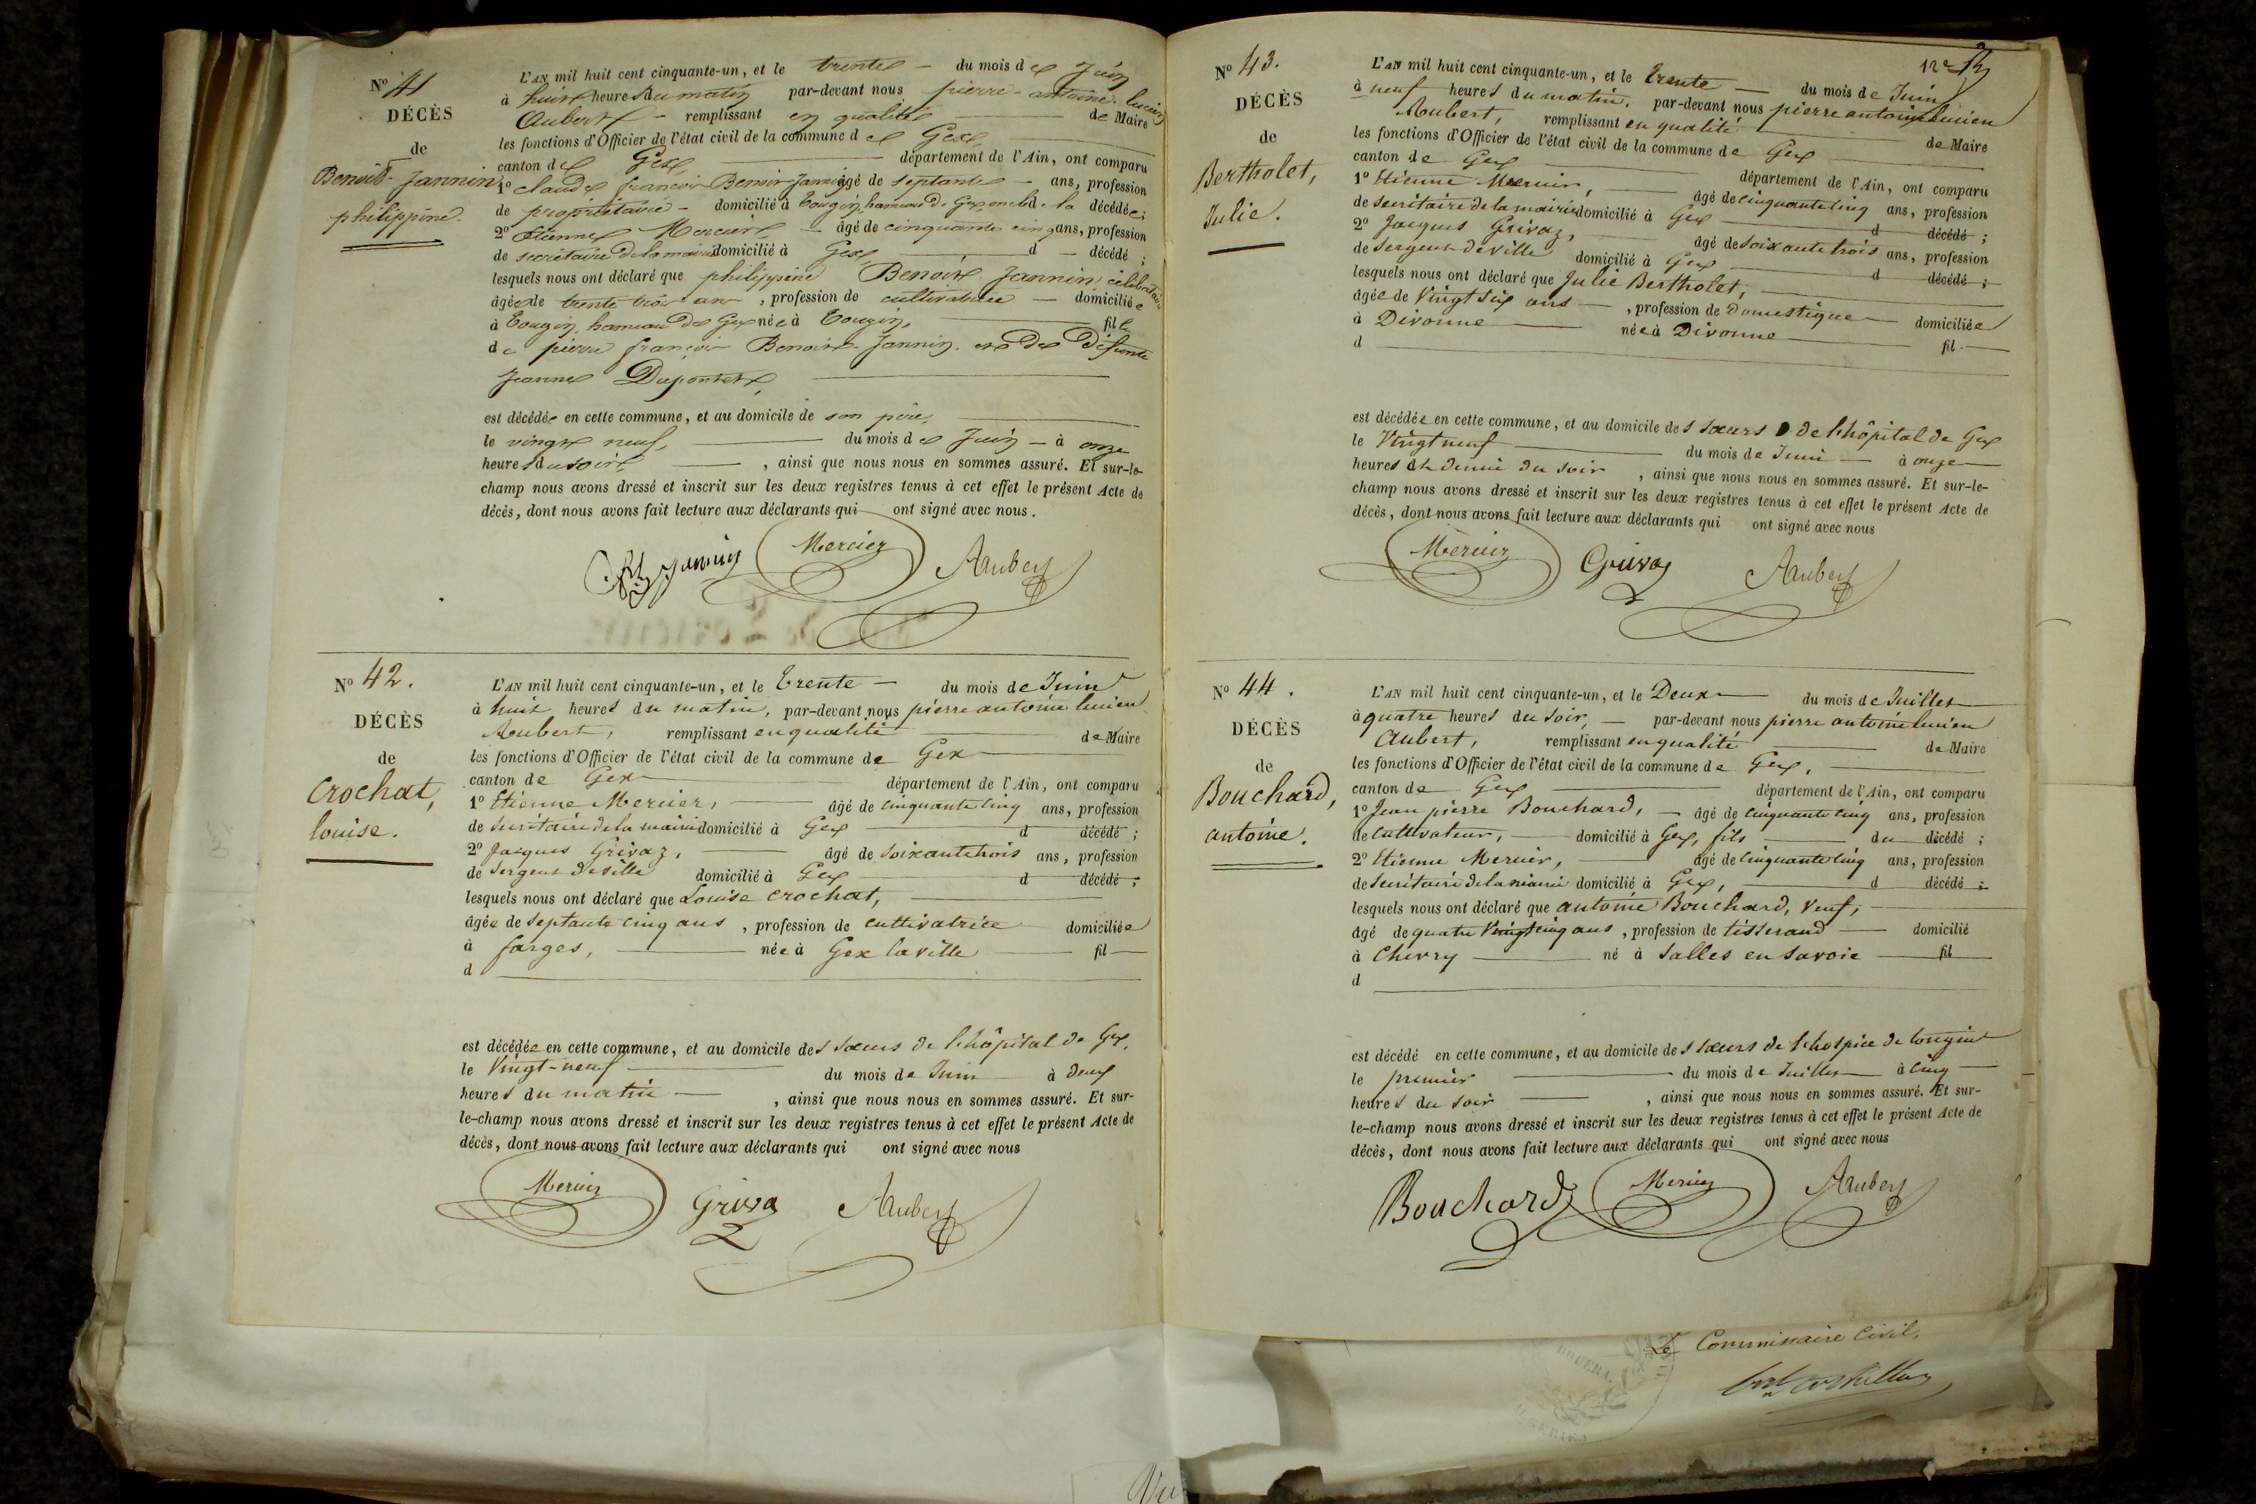 N° 41
DÉCÈS
de
Benoit-Jannin
philippine.
L'AN mil huit cent cinquante-un, et le trente du mois de Juin
à huit heures du matin par-devant nous pierre-antoine-lucien
Aubert remplissant en qualité de Maire
les fonctions d'Officier de l'état civil de la commune de Gex,
canton de Gex, département de l'Ain, ont comparu
1° claude françois Benoit Jannin âgé de septante ans, profession
de propriétaire - domicilié à Tougin, hameau de Gex, oncle de la décédée;
2° Etienne Mercier - âgé de cinquante cinq ans, profession
de secrétaire de la mairie domicilié à Gex, d décédé;
lesquels nous ont déclaré que philippine Benoit-Jannin, célibataire
âgée de trente trois ans, profession de cultivatrice domiciliée
à Tougin, hameau de Gex née à Tougin, fille
de pierre françois Benoit-Jannin et de défunte
Jeanne Dupontet,
est décédée en cette commune, et au domicile de son père,
le vingt neuf, du mois de Juin - à onze
heures du soir, , ainsi que nous nous en sommes assuré. Et sur-le-
champ nous avons dressé et inscrit sur les deux registres tenus à cet effet le présent Acte de
décès, dont nous avons fait lecture aux déclarants qui ont signé avec nous.
Jannin Mercier Aubert
N° 42.
DÉCÈS
de
Crochat,
louise.
L'AN mil huit cent cinquante-un, et le trente du mois de Juin
à huit heures du matin, par-devant nous pierre antoine lucien
Aubert, remplissant en qualité de Maire
les fonctions d'Officier de l'état civil de la commune de Gex
canton de Gex département de l'Ain, ont comparu
1° Etienne Mercier, âgé de cinquante cinq ans, profession
de secrétaire de la mairie domicilié à Gex d décédé;
2° Jacques Grivaz, âgé de soixante trois ans, profession
de sergent de ville domicilié à Gex d décédé;
lesquels nous ont déclaré que Louise Crochat,
âgée de septante cinq ans, profession de cultivatrice domiciliée
à farges, née à Gex la ville fil
d
est décédée en cette commune, et au domicile des sœurs de l'hôpital de Gex,
le Vingt-neuf du mois de Juin à deux
heures du matin , ainsi que nous nous en sommes assuré. Et sur-
le-champ nous avons dressé et inscrit sur les deux registres tenus à cet effet le présent Acte de
décès, dont nous avons fait lecture aux déclarants qui ont signé avec nous
Mercier Grivaz Aubert
N° 43.
DÉCÈS
de
Bertholet,
Julie.
L'AN mil huit cent cinquante-un, et le trente du mois de Juin
à neuf heures du matin. par-devant nous pierre antoine lucien
Aubert, remplissant en qualité de Maire
les fonctions d'Officier de l'état civil de la commune de Gex
canton de Gex département de l'Ain, ont comparu
1° Etienne Mercier, âgé de cinquante cinq ans, profession
de secrétaire de la mairie domicilié à Gex d décédé;
2° Jacques Grivaz, âgé de soixante trois ans, profession
de sergent de ville domicilié à Gex d décédé;
lesquels nous ont déclaré que Julie Bertholet,
âgée de Vingt six ans, profession de domestique domiciliée
à Divonne née à Divonne fil
d
est décédée en cette commune, et au domicile des sœurs de l'hôpital de Gex
le Vingt neuf du mois de Juin à onze
heures et demie du soir , ainsi que nous nous en sommes assuré. Et sur-le-
champ nous avons dressé et inscrit sur les deux registres tenus à cet effet le présent Acte de
décès, dont nous avons fait lecture aux déclarants qui ont signé avec nous
Mercier Grivaz Aubert
N° 44.
DÉCÈS
de
Bouchard,
antoine.
L'AN mil huit cent cinquante-un, et le Deux du mois de Juillet
à quatre heures du soir, par-devant nous pierre antoine lucien
Aubert, remplissant en qualité de Maire
les fonctions d'Officier de l'état civil de la commune de Gex,
canton de Gex département de l'Ain, ont comparu
1° Jean pierre Bouchard, âgé de cinquante cinq ans, profession
de cultivateur, domicilié à Gex, fils du décédé;
2° Etienne Mercier, âgé de cinquante cinq ans, profession
de secrétaire de la mairie domicilié à Gex, d décédé;
lesquels nous ont déclaré que antoine Bouchard, veuf,
âgé de quatre Vingt cinq ans, profession de tisserand domicilié
à Chevry né à Salles en Savoie fil
d
est décédé en cette commune, et au domicile des sœurs de l'hospice de tougin
le premier du mois de Juillet à cinq
heures du soir , ainsi que nous nous en sommes assuré. Et sur-
le-champ nous avons dressé et inscrit sur les deux registres tenus à cet effet le présent Acte de
décès, dont nous avons fait lecture aux déclarants qui ont signé avec nous
Bouchard Mercier Aubert
Le Commissaire Civil,
DOUERA
Vu